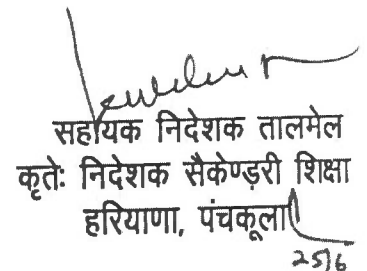 सहायक निदेशक तालमेल
कृतेः निदेशक सैकेण्ड़री शिक्षा
हरियाणा, पंचकूला
25/6